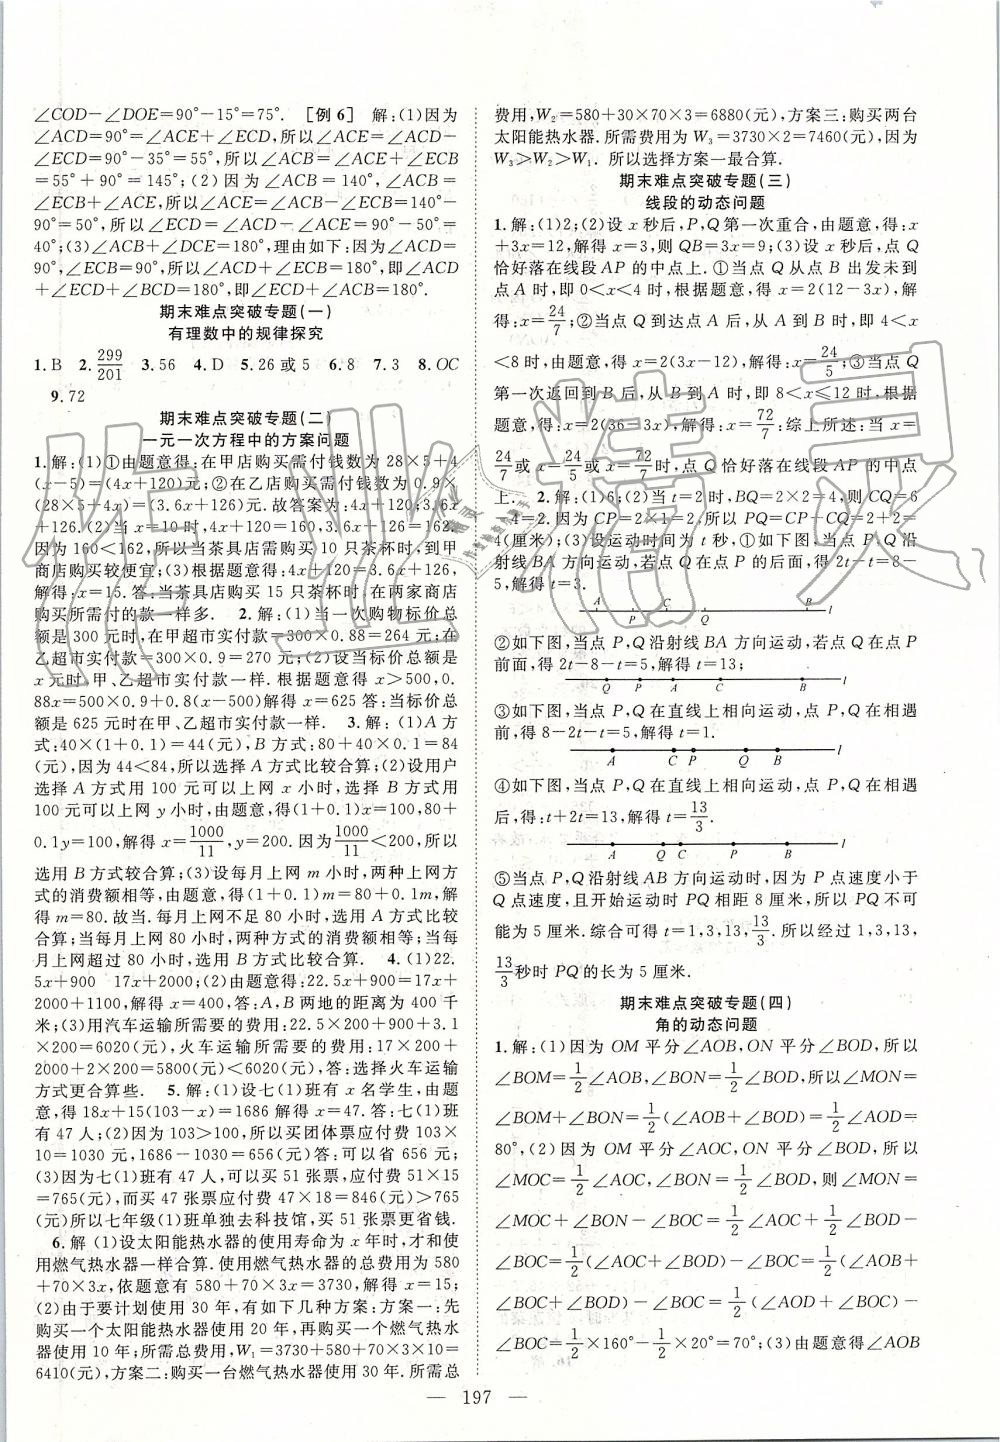 ∠COD－∠DOE=90°－15°=75°. [例6] 解:(1)因为
∠ACD=90°=∠ACE+∠ECD,所以∠ACE=∠ACD－
∠ECD=90°－35°=55°,所以∠ACB=∠ACE+∠ECB=
55°+90°=145°;(2)因为∠ACB=140°,∠ACB=
∠ECB+∠ACE,所以∠ACE=∠ACB－∠ECB=140°－
90°=50°,所以∠ECD=∠ACD－∠ACE=90°－50°=
40°;(3)∠ACB+∠DCE=180°,理由如下:因为∠ACD=
90°,∠ECB=90°,所以∠ACD+∠ECB=180°=∠ACD
+∠ECD+∠BCD=180°,所以∠ACB=180°.
期末难点突破专题(一)
有理数中的规律探究
1.B 2.299/201 3.56 4.D 5.26或5 6.8 7.3 8.OC
9.72
期末难点突破专题(二)
一元一次方程中的方案问题
1.解:(1)①由题意得:在甲店购买需付钱数为28×5+4
(x－5)=(4x+120)元;②在乙店购买需付钱数为0.9×
(28×5－4x)=(3.6x+126)元.故答案为:4x+120;3.6x
+126.(2)当x=10时,4x+120=160,3.6x+126=162.
因为160<162,所以当茶具店需购买10只茶杯时,到甲
商店购买较便宜;(3)根据题意得:4x+120=3.6x+126,
解得:x=15.答:当茶具店购买15只茶杯时,在两家商店
购买所需付的款一样多. 2.解:(1)当一次购物标价总
额是300元时,在甲超市实付款=300×0.88=264元;在
乙超市实付款=300×0.9=270元;(2)设当标价总额是
x元时,甲、乙超市实付款一样.根据题意得x>500,0.
88x=500×0.9+0.8(x－500)解得x=625答:当标价总
额是625元时在甲、乙超市实付款一样. 3.解:(1)A方
式:40×(1+0.1)=44(元),B方式:80+40×0.1=84
(元),因为44<84,所以选择A方式比较合算;(2)设用户
选择A方式用100元可以上网x小时,选择B方式用
100元可以上网y小时,由题意,得(1+0.1)x=100,80+
0.1y=100,解得x=1000/11,y=200.因为1000/11<200,所以
选用B方式较合算;(3)设每月上网m小时,两种上网方
式的消费额相等,由题意,得(1+0.1)m=80+0.1m,解
得m=80.故当.每月上网少于80小时,选用A方式比较
合算;当每月上网80小时,两种方式的消费额相等;当每
月上网多于80小时,选用B方式比较合算. 4.(1)22.
5x+900 17x+2000(2)由题意得:22.5x+900=17x+
2000,解得:x=400.答:A,B两地的距离为400千
米;(3)用汽车运输所需要的费用:22.5×200+900+3.1
×200=6020(元),火车运输所需要的费用:17×200+
2000+2×200=5800(元)<6020(元).答:选择火车运输
方式更合算些. 5.解:(1)设七(1)班有x名学生,由题
意,得18x+15(103－x)=1686解得x=47.答:七(1)班
有47人;(2)因为103>100,所以买团体票应付费103×
10=1030元,1686－1030=656元;答:可以省656元;
(3)因为七(1)班有47人,可以买51张票,应付费51×15
=765(元),而买47张票应付费47×18=846(元)>765
(元)所以七年级(1)班单独去科技馆,买51张票更省钱.
6.解(1)设太阳能热水器的使用寿命为x年时,才和使
用燃气热水器一样合算.使用燃气热水器的总费用为580
+70×3x,依题意有580+70×3x=3730,解得x=15;
(2)由于要计划使用30年,有如下几种方案:方案一:先
购买一个太阳能热水器使用20年,再购买一个燃气热水
器使用10年;所需总费用,W₁=3730+580+70×3×10=
6410(元),方案二:购买一台燃气热水器使用30年.所需总
费用,W₂=580+30×70×3=6880(元),方案三:购买两台
太阳能热水器.所需费用为W₃=3730×2=7460(元),因为
W₃>W₂>W₁. 所以选择方案一最合算.
期末难点突破专题(三)
线段的动态问题
1.解:(1)2;(2)设x秒后,P,Q第一次重合,由题意,得:x
+3x=12,解得x=3,则QB=3x=9;(3)设x秒后,点Q
恰好落在线段AP的中点上.①当点Q从点B出发未到
点A时,即0<x<4时,根据题意,得:x=2(12－3x),解
得:x=24/7;②当点Q到达点A后,从A到B时,即4<x
<8时,由题意,得:x=2(3x－12),解得:x=24/5;③当点Q
第一次返回到B后,从B到A时,即8<x≤12时,根据
题意,得:x=2(36－3x),解得:x=72/7;综上所述:当x=
24/7或x=24/5或x=72/7时,点Q恰好落在线段AP的中点
上. 2.解:(1)6;(2)当t=2时,BQ=2×2=4,则CQ=6
－4=2.因为CP=2×1=2.所以PQ=CP+CQ=2+2=
4(厘米);(3)设运动时间为t秒,①如下图,当点P,Q沿
射线BA方向运动,若点Q在点P的后面,得2t－t=8－
5,解得t=3.
A P C Q B l
②如下图,当点P,Q沿射线BA方向运动,若点Q在点P
前面,得2t－8－t=5,解得t=13;
Q P A C B l
③如下图,当点P,Q在直线上相向运动,点P,Q在相遇
前,得8－2t－t=5,解得t=1.
A C P Q B l
④如下图,当点P,Q在直线上相向运动,点P,Q在相遇
后,得:t+2t=13,解得t=13/3.
A Q C P B l
⑤当点P,Q沿射线AB方向运动时,因为点P速度小于
Q点速度,且开始运动时PQ相距8厘米,所以PQ不可
能为5厘米.综合可得t=1,3,13,13/3.所以经过1,3,13,
13/3秒时PQ的长为5厘米.
期末难点突破专题(四)
角的动态问题
1.解:(1)因为OM平分∠AOB,ON平分∠BOD,所以
∠BOM=1/2∠AOB,∠BON=1/2∠BOD,所以∠MON=
∠BOM+∠BON=1/2(∠AOB+∠BOD)=1/2∠AOD=
80°,(2)因为OM平分∠AOC,ON平分∠BOD,所以
∠MOC=1/2∠AOC,∠BON=1/2∠BOD,则∠MON=
∠MOC+∠BON－∠BOC=1/2∠AOC+1/2∠BOD－
∠BOC=1/2(∠AOC+∠BOD)－∠BOC=1/2(∠AOB
+∠BOC+∠BOD)－∠BOC=1/2(∠AOD+∠BOC)
－∠BOC=1/2×160°－1/2×20°=70°;(3)由题意得∠AOB
— 197 —
作业精灵